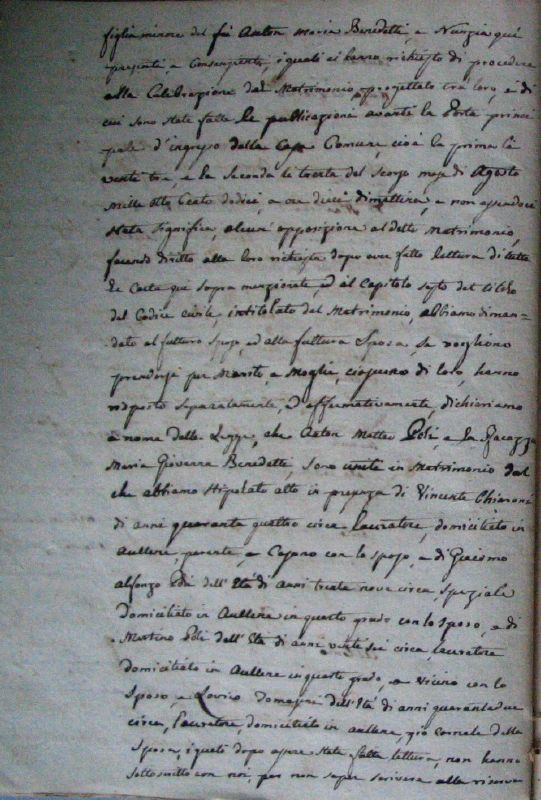 figlia minore del fù Anton Maria Benedetti, e Nunzia quì
presenti, e Consenzienti, i quali ci hanno richiesto di procedere
alla Celebrazione del Matrimonio progettato tra loro, e di
cui sono state fatte le publicazioni avanti la Porta princi
pale d'ingresso della Casa Comune, cioè la prima li
venti tre, e la seconda li trenta del scorso mese di Agosto
mille otto Cento dodici, a ore dieci di mattina, e non essendoci
stata significa, alcuna opposizione al detto Matrimonio,
facendo diritto alla loro richiesta dopo aver fatto lettura di tutte
le Carte quì sopra menzionate, ed il Capitolo sesto del titolo
del Codice civile, intitolato del Matrimonio, abbiamo diman=
dato al futuro sposo, ed alla futtura Sposa, se vogliono
prendersi per Marito, e Moglie, ciascuno di loro, hanno
risposto separatamente, ed affermativamente, dichiariamo
a nome della Legge, che Anton Matteo Poli, e la Ragazza
Maria Giovanna Benedetti, sono uniti in Matrimonio, del
che abbiamo stipulato atto in presenza di Vincente Chiaroni
di anni quaranta quattro circa, lavratore, domiciliato in
Aullene, parente, e Cogino con lo sposo, e di Giacomo
Alfonzo Poli dell'Età di anni trenta nove circa, speziale
domiciliato in Aullene in quarto grado con lo Sposo, e di
Martino Poli dell'Età di anni venti sei circa, lavratore
domiciliato in Aullene in quarto grado, e Vicino con lo
Sposo, e dell'Età di anni quaranta due
circa, lavratore, domiciliato in Aullene, zio Carnale della
Sposa, i quali dopo essere stata fatta lettura, non hanno
sottoscritto con noi, per non saper scrivere alla riserva